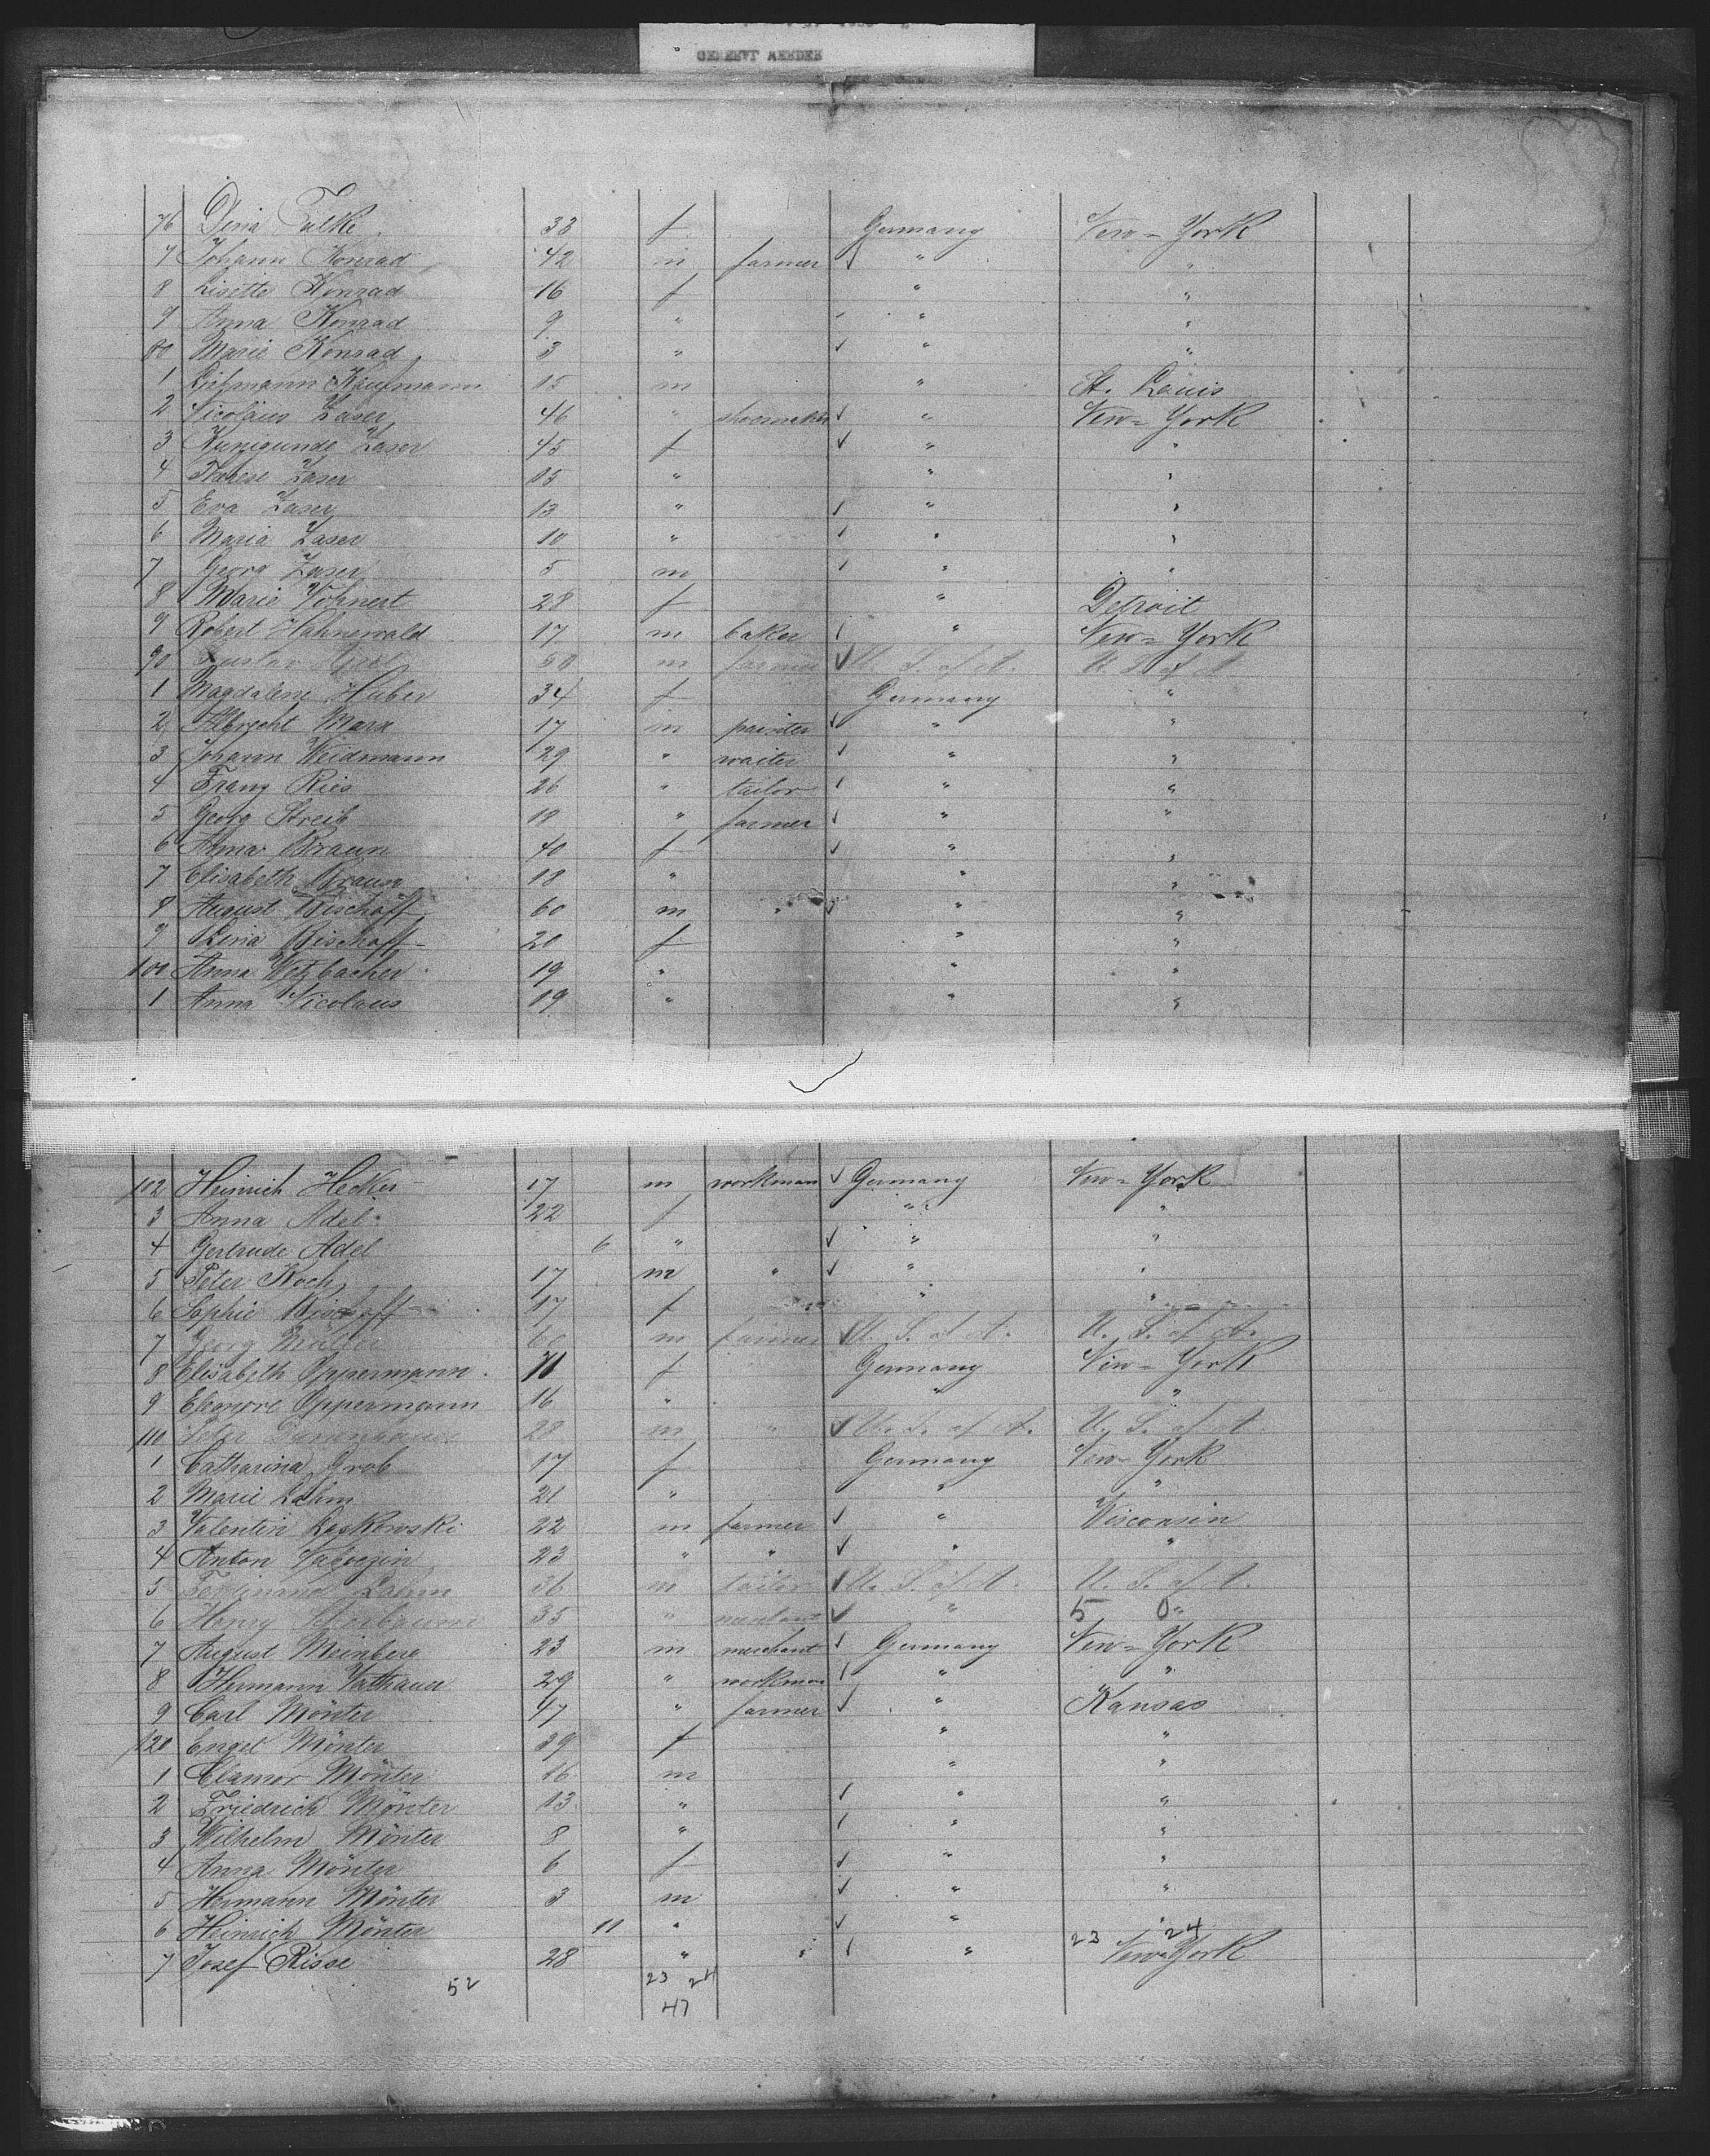 76 Dina Falke 33 f Germany New-York
7 Johann Konrad 42 m farmer ✓ " "
8 Lisette Konrad 16 f " "
9 Anna Konrad 9 " " "
80 Marie Konrad 3 " ✓ " "
1 Kaufmann 15 m " St. Louis
2 Nicolaus Zaser 46 " shoemaker ✓ " New-York
3 Kunigunde Zaser 45 f ✓ " "
4 Therese Zaser 15 " " "
5 Eva Zaser 13 " ✓ " "
6 Maria Zaser 10 " ✓ " "
7 Georg Zaser 5 m ✓ " "
8 Marie 28 f " Detroit
9 Robert Hahnewald 17 m baker ✓ " New-York
90 Gustav 50 m farmer ✓ U. S. of A. U. S. of A.
1 Magdalene Huber 34 f Germany "
2 Albrecht Marx 17 m painter ✓ " "
3 Johann Weidmann 29 " waiter ✓ " "
4 Franz Ries 26 " tailor ✓ " "
5 Georg Streib 18 " farmer ✓ " "
6 Anna Braun 40 f ✓ " "
7 Elisabeth Braun 18 " " "
8 August Bischoff 60 m " ✓ " "
9 Lina Bischoff 20 f " "
100 Anna Wetzbacher 19 " " "
1 Anna Nicolaus 19 " " "
102 Heinrich Hecker 17 m workman ✓ Germany New-York
3 Anna Adel 22 f " "
4 Gertrude Adel 6 " ✓ " "
5 Peter Koch 17 m " ✓ " "
6 Sophie Bischoff 17 f " "
7 Georg Müller 60 m farmer ✓ U. S. of A. U. S. of A.
8 Elisabeth Oppermann 71 f Germany New-York
9 Eleonore Oppermann 16 " " "
110 Peter 28 m " ✓ U. S. of A. U. S. of A.
1 Catharina Grob 17 f Germany New-York
2 Marie Lahm 21 " " "
3 Valentin Laskowski 22 m farmer ✓ " Wisconsin
4 Anton 23 " " ✓ " "
5 Ferdinand Lahm 36 m tailor ✓ U. S. of A. U. S. of A.
6 Henry 35 " ✓ " 5 0 "
7 August Meinberg 23 m merchant ✓ Germany New-York
8 Hermann Vathauer 29 " workman ✓ " "
9 Carl Mönter 47 " farmer ✓ " Kansas
120 Engel Mönter 39 f " "
1 Clamor Mönter 16 m " "
2 Friedrich Mönter 13 " ✓ " "
3 Wilhelm Mönter 8 " ✓ " "
4 Anna Mönter 6 f ✓ " "
5 Hermann Mönter 3 m ✓ " "
6 Heinrich Mönter 11 " ✓ " "
23 24
7 Josef Risse 28 " " ✓ " New-York
52 23 24
47